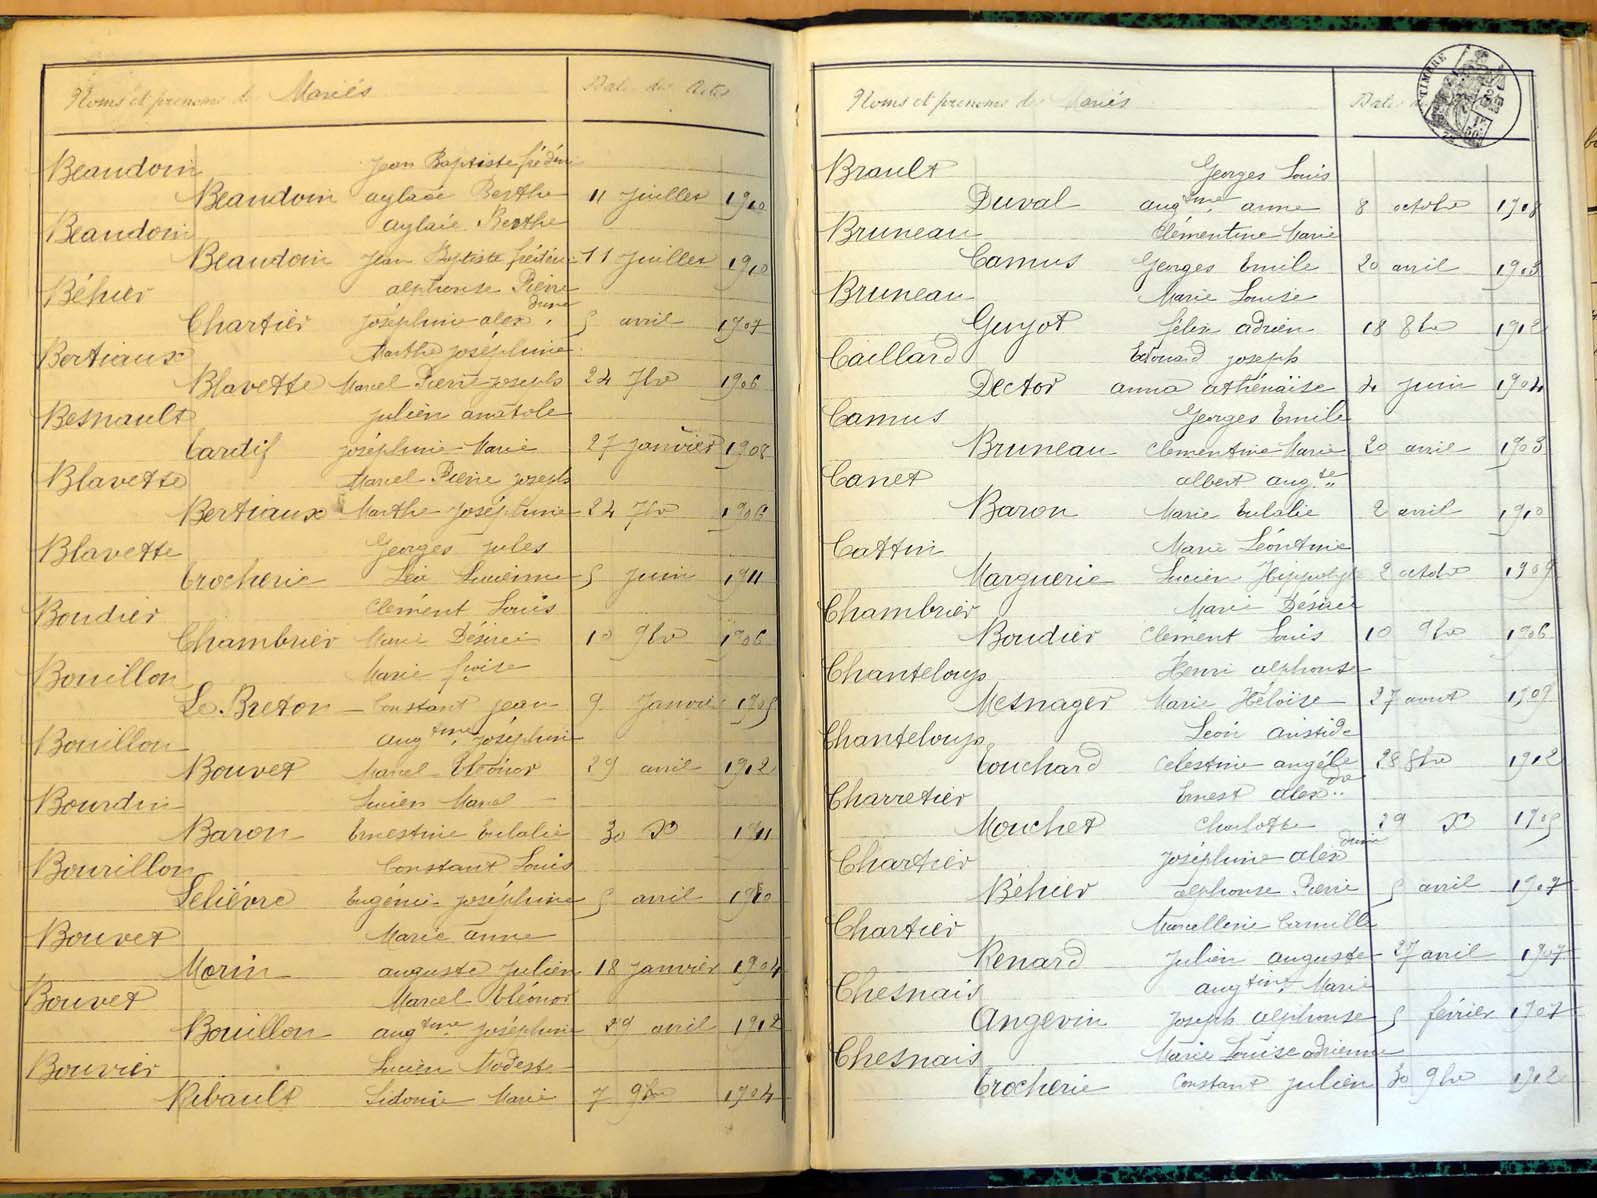 Noms et prénoms des Mariés Dates des Actes
Beaudoin Jean Baptiste frédéric
Beaudoin aglaée Berthe 11 juillet 1910
Beaudoin aglaée Berthe
Beaudoin Jean Baptiste frédéric 11 juillet 1910
Béhier alphonse Pierre
Chartier joséphine alexdrine 5 avril 1907
Bertiaux Marthe joséphine
Blavette Marcel Pierre joseph 24 7bre 1906
Besnault julien anatole
Tardif joséphine Marie 27 janvier 1908
Blavette Marcel Pierre joseph
Bertiaux Marthe joséphine 24 7bre 1906
Blavette Georges jules
Trocherie Léa Lucienne 5 juin 1911
Boudier Clément Louis
Chambrier Marie Désirée 10 9bre 1906
Bouillon Marie fçoise
Le Breton Constant jean 9 Janvier 1905
Bouillon augtine joséphine
Bouvet Marcel Eléonor 29 avril 1912
Bourdin Lucien Marcel
Baron Ernestine Eulalie 30 Xbre 1911
Bourillon Constant Louis
Lelièvre Eugénie joséphine 5 avril 1910
Bouvet Marie anne
Morin auguste julien 18 janvier 1904
Bouvet Marcel Eléonor
Bouillon augtine joséphine 29 avril 1912
Bouvier Lucien Modeste
Ribault Sidonie Marie 7 9bre 1904
Noms et prénoms des Mariés Dates
TIMBRE
Brault Georges Louis
Duval augtine anne 8 octobre 1908
Bruneau Clémentine Marie
Camus Georges Emile 20 avril 1903
Bruneau Marie Louise
Guyot félix adrien 18 8bre 1912
Caillard Edouard joseph
Dector anna athénaïse 4 juin 1904
Camus Georges Emile
Bruneau Clémentine Marie 20 avril 1903
Canet albert aug.te
Baron Marie Eulalie 2 avril 1910
Cattin Marie Léontine
Marguerie Lucien Hippolyte 2 octobre 1909
Chambrier Marie Désirée
Boudier Clément Louis 10 9bre 1906
Chanteloup Henri alphonse
Mesnager Marie Héloïse 27 aout 1909
Chanteloup Léon aristide
Touchard Célestine angèle 28 8bre 1912
Charretier Ernest alexdre
Mouchet Charlotte 29 Xbre 1905
Chartier Joséphine alexdrine
Béhier alphonse Pierre 5 avril 1907
Chartier Marcelline Camille
Renard Julien auguste 27 avril 1907
Chesnais augtine Marie
Angevin Joseph alphonse 5 février 1907
Chesnais Marie Louise adrienne
Trocherie Constant julien 30 9bre 1912